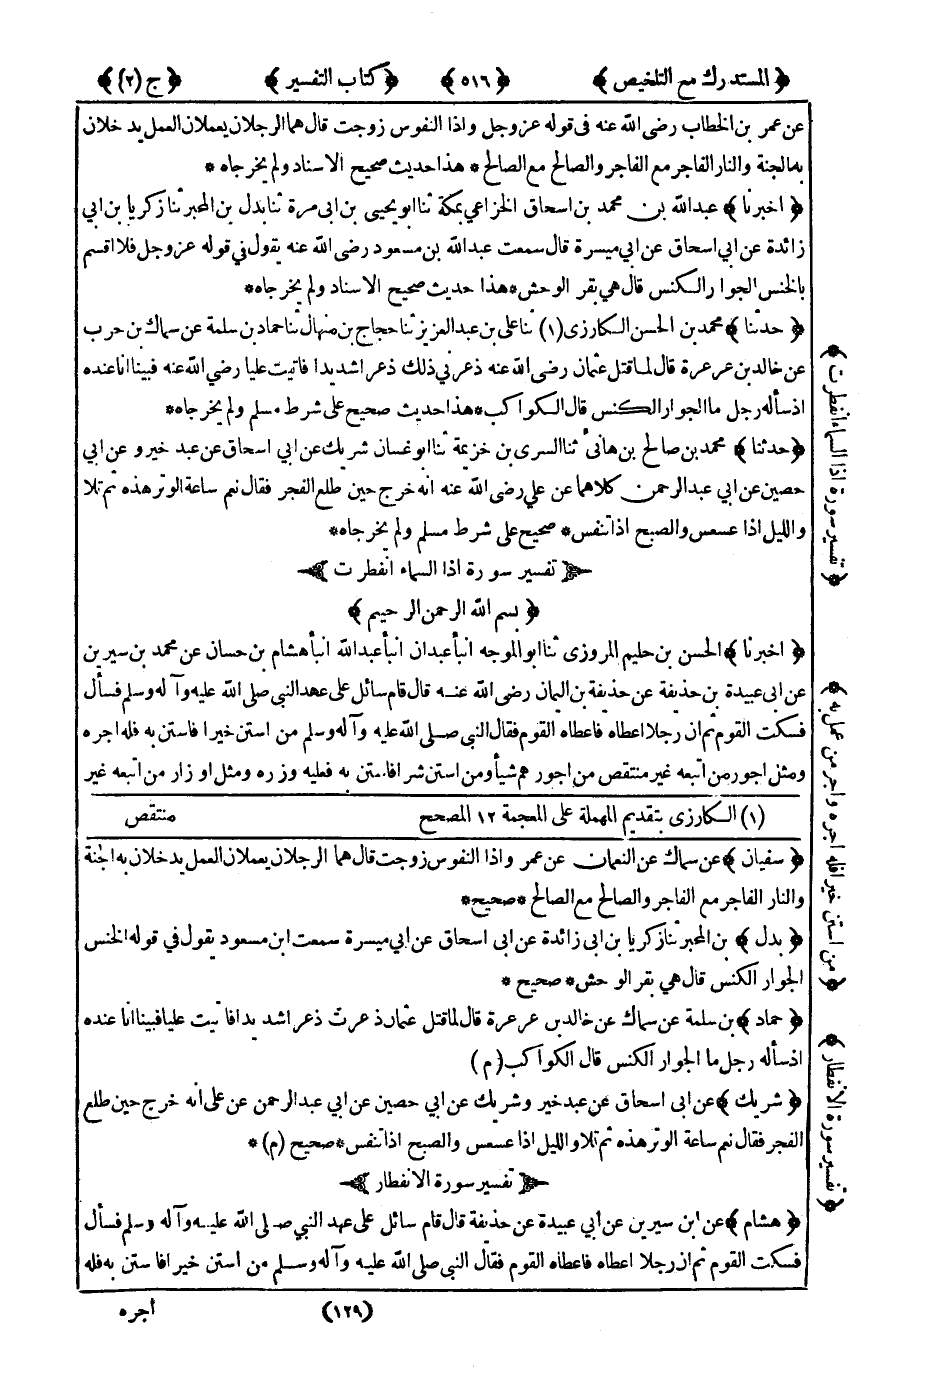 ﴿ المستدرك مع التلخيص ﴾ ﴿ ٥١٦ ﴾ ﴿ كتاب التفسير ﴾ ﴿ ج (٢) ﴾
عن عمر بن الخطاب رضى الله عنه فى قوله عز وجل واذا النفوس زوجت قال هما الرجلان يعملان العمل يدخلان
به الجنة والنار الفاجر مع الفاجر والصالح مع الصالح * هذا حديث صحيح الاسناد ولم يخرجاه *
﴿ اخبرنا ﴾ عبدالله بن محمد بن اسحاق الخزاعي بمكة ثنا ابو يحيى بن ابى مرة ثنا بدل بن المحبر ثنا زكريا بن ابي
زائدة عن ابي اسحاق عن ابي ميسرة قال سمعت عبدالله بن مسعود رضى الله عنه يقول في قوله عز وجل فلا اقسم
بالخنس الجوار الكنس قال هي بقر الوحش * هذا حديث صحيح الاسناد ولم يخرجاه *
﴿ حدثنا ﴾ محمد بن الحسن الكارزى (١) ثنا على بن عبد العزيز ثنا حجاج بن منهال ثنا حماد بن سلمة عن سماك بن حرب
عن خالد بن عرعرة قال لما قتل عثمان رضى الله عنه ذعرني ذلك ذعرا شديدا فاتيت عليا رضي الله عنه فبينا انا عنده
اذ سأله رجل ما الجوار الكنس قال الكواكب * هذا حديث صحيح على شرط مسلم ولم يخرجاه *
﴿ حدثنا ﴾ محمد بن صالح بن هانئ ثنا السرى بن خزيمة ثنا ابو غسان شريك عن ابي اسحاق عن عبد خير و عن ابي
حصين عن ابي عبد الرحمن كلاهما عن علي رضى الله عنه انه خرج حين طلع الفجر فقال نعم ساعة الوتر هذه ثم تلا
والليل اذا عسعس والصبح اذا تنفس * صحيح على شرط مسلم ولم يخرجاه *
تفسير سورة اذا السماء انفطرت
﴿ بسم الله الرحمن الرحيم ﴾
﴿ اخبرنا ﴾ الحسن بن حليم المروزى ثنا ابو الموجه انبأ عبدان انبأ عبدالله انبأ هشام بن حسان عن محمد بن سيرين
عن ابى عبيدة بن حذيفة عن حذيفة بن اليمان رضى الله عنه قال قام سائل على عهد النبي صلى الله عليه وآله وسلم فسأل
فسكت القوم ثم ان رجلا اعطاه فاعطاه القوم فقال النبي صلى الله عليه وآله وسلم من استن خيرا فاستن به فله اجره
ومثل اجور من اتبعه غير منتقص من اجورهم شيأ ومن استن شرا فاستن به فعليه وزره ومثل اوزار من اتبعه غير
(١) الكارزى بتقديم المهملة على المعجمة ١٢ المصحح منتقص
﴿ سفيان ﴾ عن سماك عن النعمان عن عمر واذا النفوس زوجت قال هما الرجلان يعملان العمل يدخلان به الجنة
والنار الفاجر مع الفاجر والصالح مع الصالح * صحيح *
﴿ بدل ﴾ بن المحبر ثنا زكريا بن ابى زائدة عن ابى اسحاق عن ابي ميسرة سمعت ابن مسعود يقول في قوله الخنس
الجوار الكنس قال هي بقر الوحش * صحيح *
﴿ حماد ﴾ بن سلمة عن سماك عن خالد بن عرعرة قال لما قتل عثمان ذعرت ذعرا شديدا فاتيت عليا فبينا انا عنده
اذ سأله رجل ما الجوار الكنس قال الكواكب ( م )
﴿ شريك ﴾ عن ابى اسحاق عن عبد خير وشريك عن ابي حصين عن ابي عبد الرحمن عن على انه خرج حين طلع
الفجر فقال نعم ساعة الوتر هذه ثم تلا والليل اذا عسعس والصبح اذا تنفس * صحيح (م) *
تفسير سورة الانفطار
﴿ هشام ﴾ عن ابن سيرين عن أبي عبيدة عن حذيفة قال قام سائل على عهد النبي صلى الله عليه وآله وسلم فسأل
فسكت القوم ثم ان رجلا اعطاه فاعطاه القوم فقال النبى صلى الله عليه وآله وسلم من استن خيرا فاستن به فله
(١٢٩) أجره
﴿ تفسير سورة اذا السماء انفطرت ﴾
﴿ من استن خيرا فله اجره واجر من عمل به ﴾
﴿ تفسير سورة الانفطار ﴾